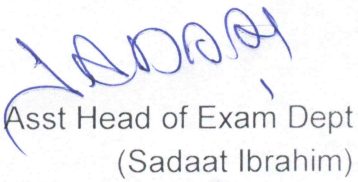 Asst Head of Exam Dept
(Sadaat Ibrahim)